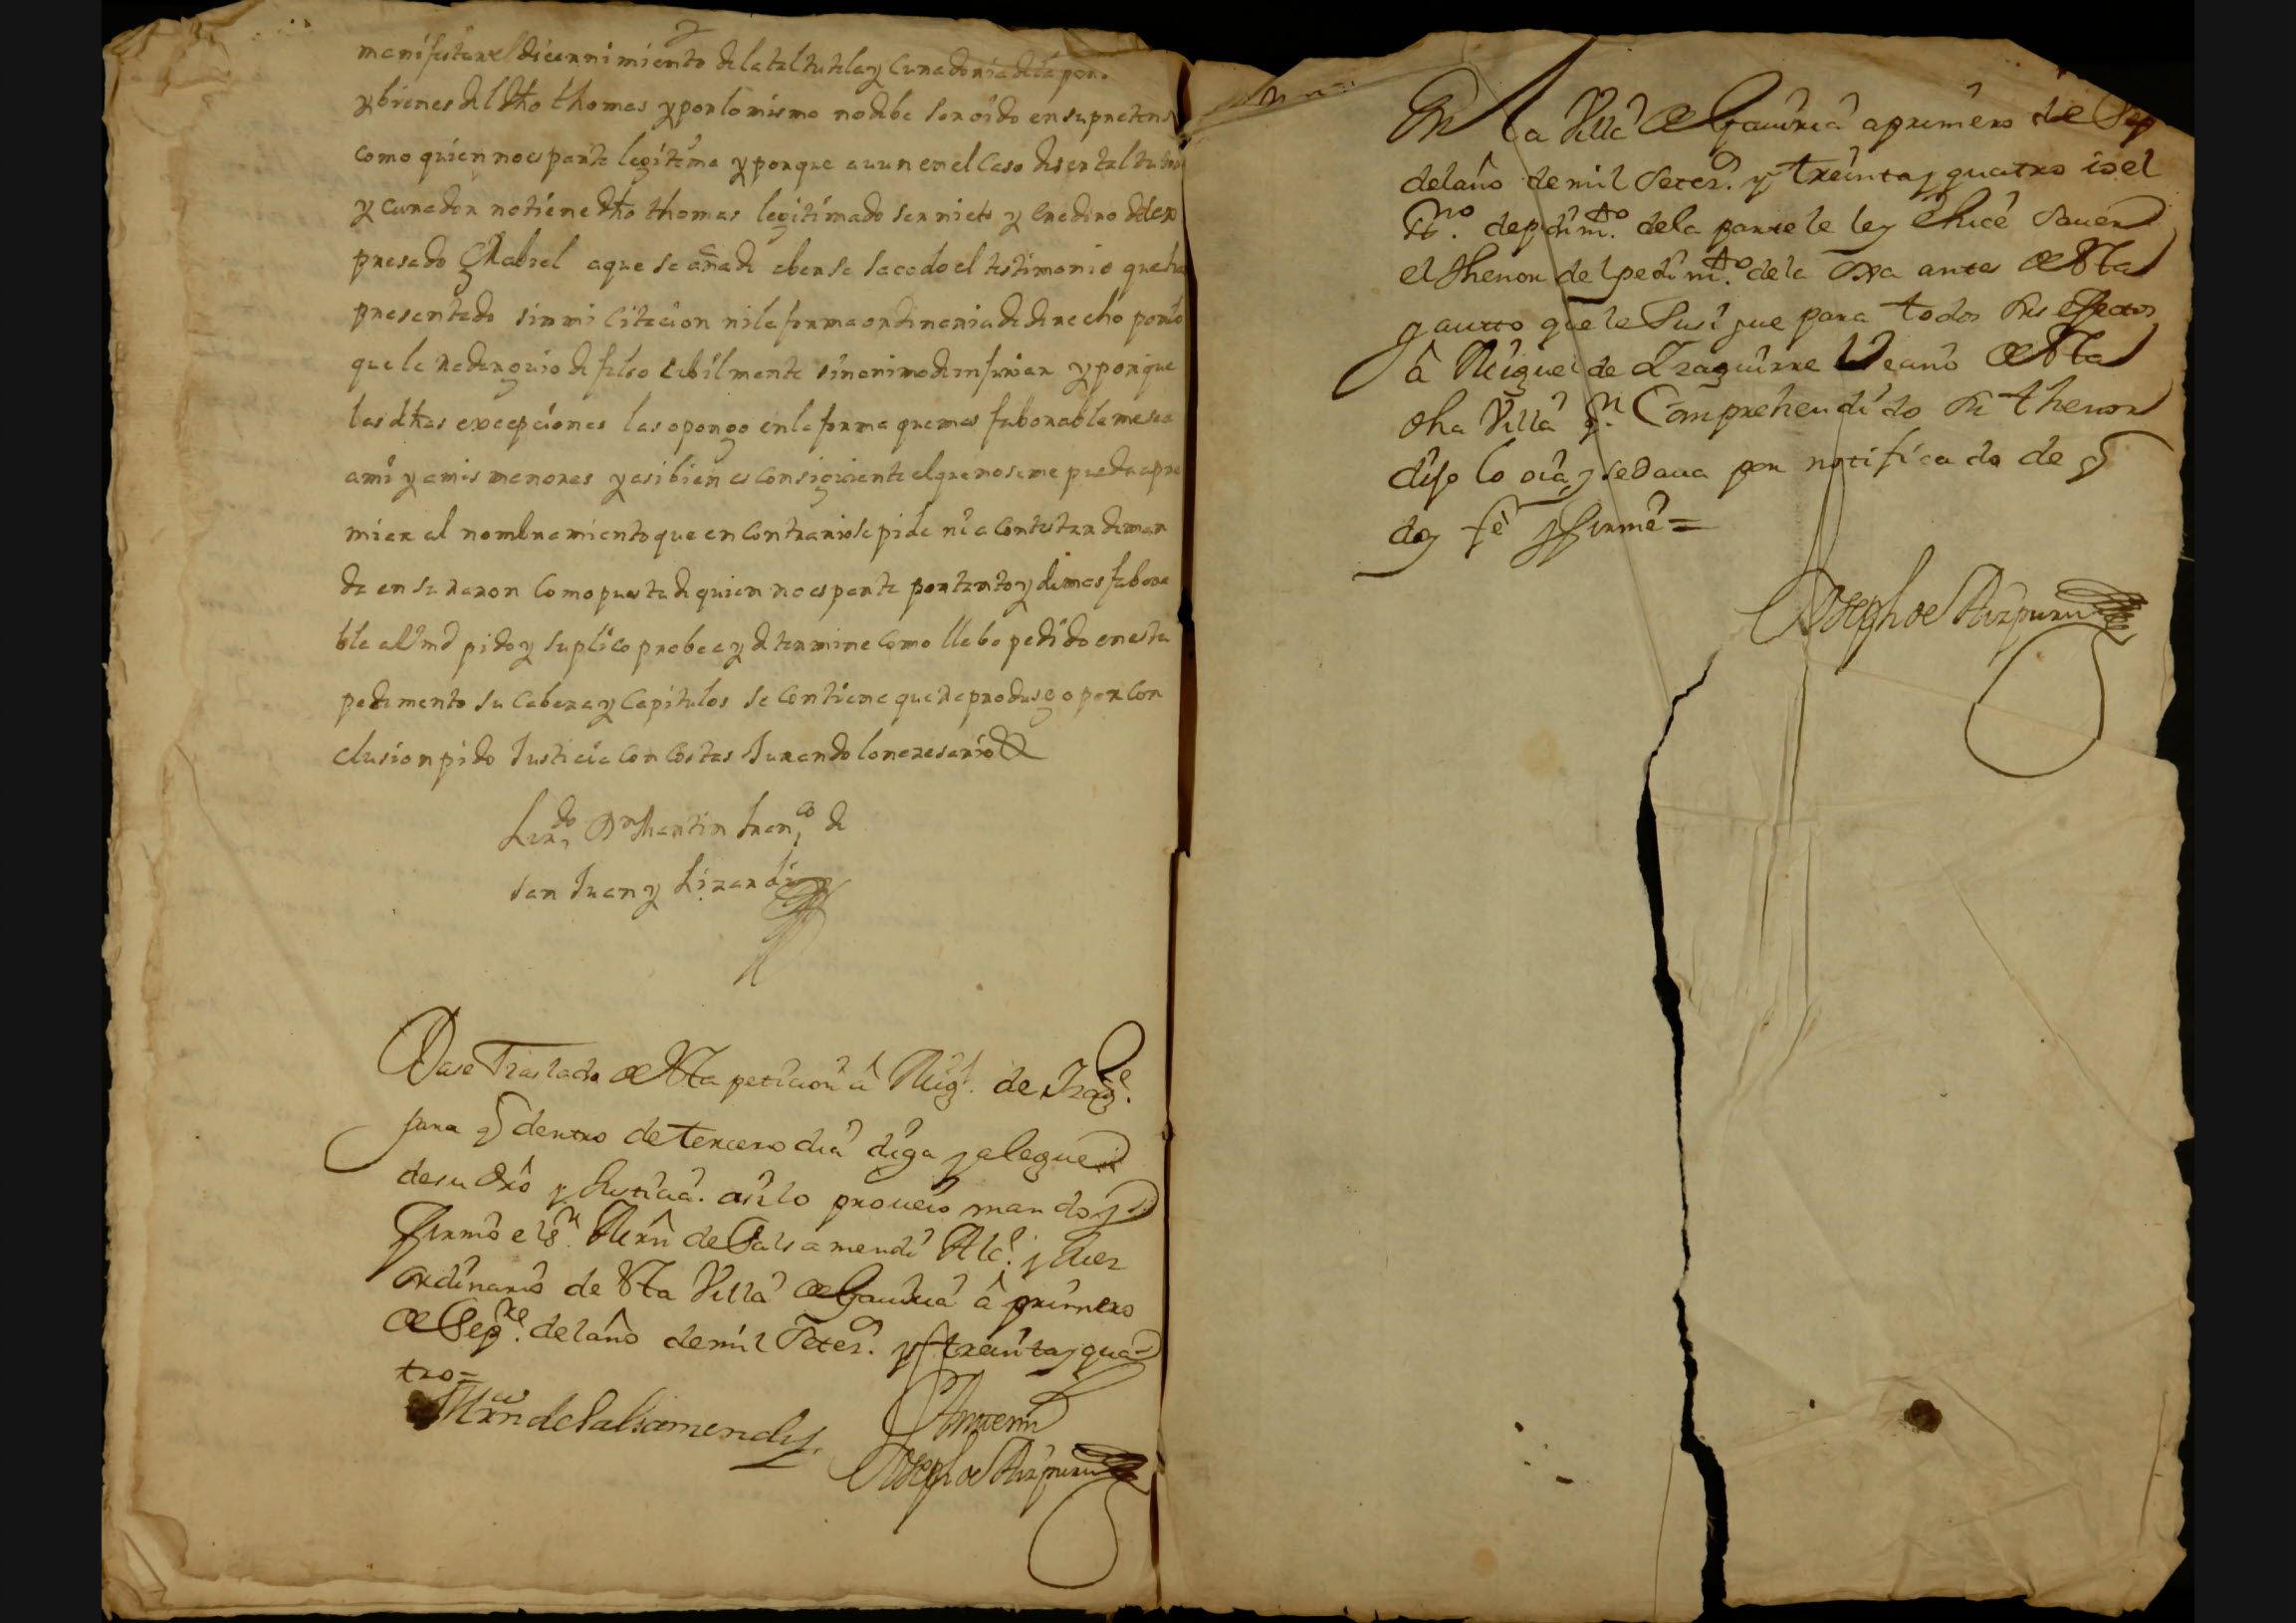 manifestar el dicernimiento de la tal tutela y Curadoria de la per.
y bienes del dho thomas y por lo mismo no debe ser oido en su pretens
como quien no es parte legitima y porque auun en el caso de ser tal tutor
y curador no tiene dho thomas legitimado ser nieto y eredero del ex
presado Grabiel a que se añade eberse sacado el testimonio que ha
presentado sin mi citacion ni la forma ordinaria de derecho por lo
que le redarguio de falso cibilmente sin animo de injuriar y porque
las dhas excepciones las opongo en la forma que mas faborable me sea
a mi y a mis menores y asi bien es consiguiente el que no se me pueda apre
miar al nombramiento que en contrario se pide ni a contestar deman
da en su razon como puesta de quien no es parte por tanto y demas fabora
ble a Vmd pido y suplico probea y determine como llebo pedido en esta
pedimento su Cabeza y Capitulos se contiene que reprodusgo por con
clusion pido Justicia con costas Jurando lo nezesario &
Lizdo Dn Martin Franco de
San Juan y Lizardi
Dase Traslado de Vta peticion â Migl. de Yzag.e
para q dentro de tercero dia diga y alegue
de su dro y Justicia. asi lo proueio mando y
firmo el Sr. Mrn de Salsamendi Alc.e y Juez
ordinario de Vta Villa de Gauiria â primero
de Sepre. del año de mil Setez.s y treinta y qua
tro=
Mrn de Salsamendy
Antemi
Joseph de Aizpuru
En la Villa de Gauiria a primero de Sep
del año de mil Setez.s y treinta y quatro io el
ssno. de pedimto. de la parte lei e hice sauer
el thenor del pedimto. de la oxa antes de Vta
y autto que le Susigue para todos sus efectos
â Miguel de Yzaguirre Vecino de Vta
dha Villa qn. Comprehendido su thenor
dijo lo oia, y se daua por notificado de q
doy fè y firmè=
Joseph de Aizpuru